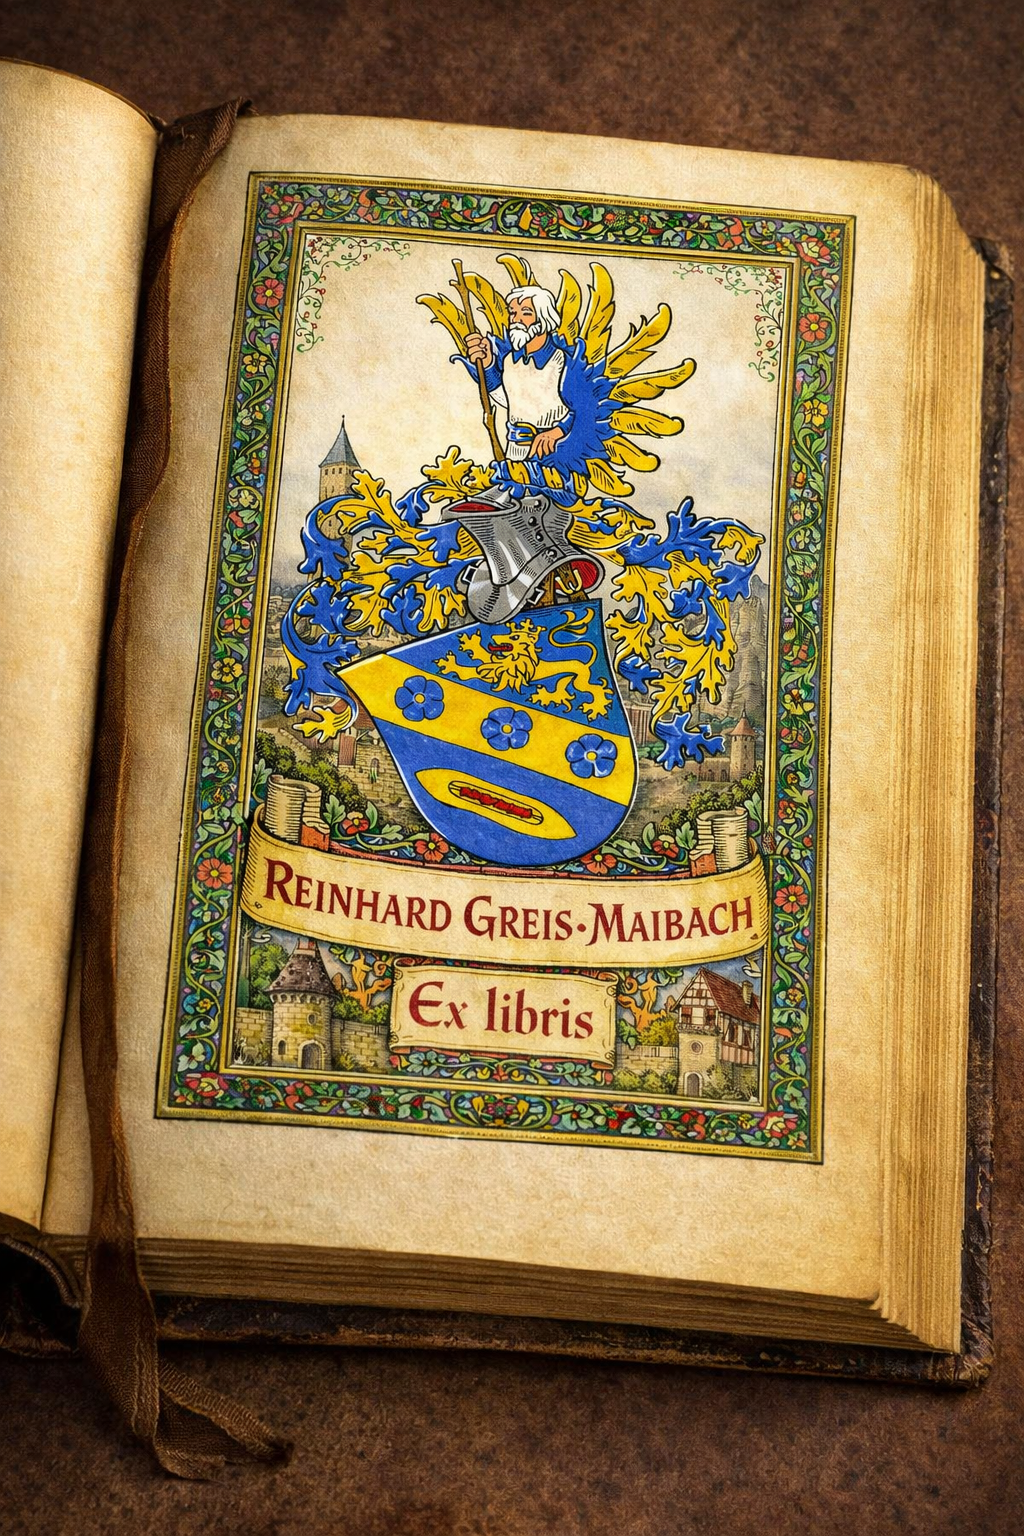 REINHARD GREIS-MAIBACH
Ex libris